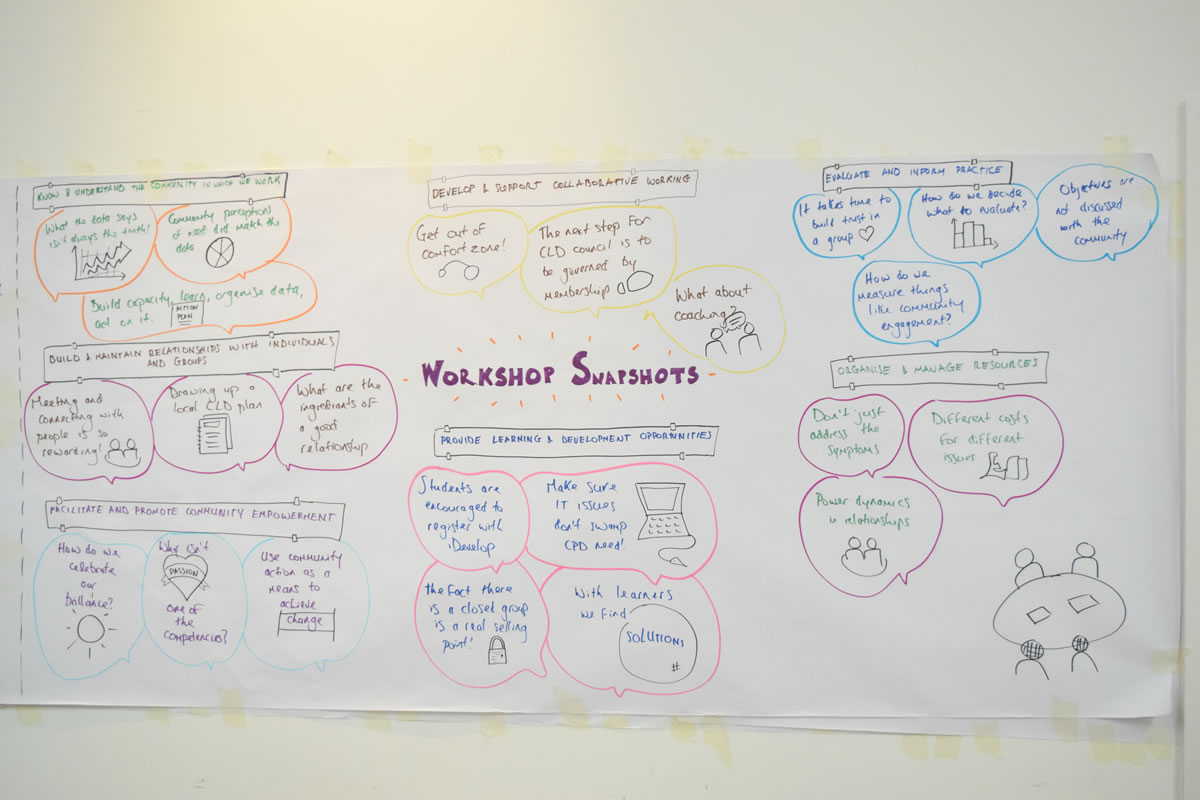 KNOW & UNDERSTAND THE COMMUNITY IN WHICH WE WORK
What the data says
isn't always the truth!
Community perception
of need did match the
data
Build capacity, learn, organise data,
act on it.
ACTION
PLAN
BUILD & MAINTAIN RELATIONSHIPS WITH INDIVIDUALS
AND GROUPS
Meeting and
connecting with
people is so
rewarding!
Drawing up a
local CLD plan
What are the
ingredients of
a good
relationship
FACILITATE AND PROMOTE COMMUNITY EMPOWERMENT
How do we
celebrate
our
brilliance?
Why isn't
PASSION
one of
the
competencies?
Use community
action as a
means to
achieve
change
DEVELOP & SUPPORT COLLABORATIVE WORKING
Get out of
comfort zone!
The next step for
CLD council is to
be governed by
membership
What about
coaching?
WORKSHOP SNAPSHOTS
PROVIDE LEARNING & DEVELOPMENT OPPORTUNITIES
Students are
encouraged to
register with
iDevelop
Make sure
IT issues
don't swamp
CPD need!
the fact there
is a closed group
is a real selling
point!
With learners
we find
SOLUTIONS
#
EVALUATE AND INFORM PRACTICE
It takes time to
build trust in
a group
How do we decide
what to evaluate?
Objectives are
not discussed
with the
community
How do we
measure things
like community
engagement?
ORGANISE & MANAGE RESOURCES
Don't just
address the
symptoms
Different costs
for different
issues
Power dynamics
in relationships